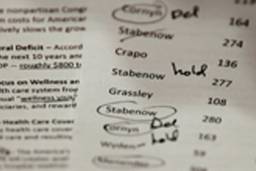 nonpartisan Cong
costs for America
ively slows the grow
ral Deficit – Accord
the next 10 years an
roughly $800 b
cus on Wellness an
lth care system from
ual "wellness visit"
iciaries, and reward
Health Care Cover
health care cover
care and resulting
The American's
Cornyn Del
164
Stabenow
274
Crapo
136
Stabenow hold
277
Grassley
108
Stabenow
280
Cornyn Del
163
Wyden hold
59